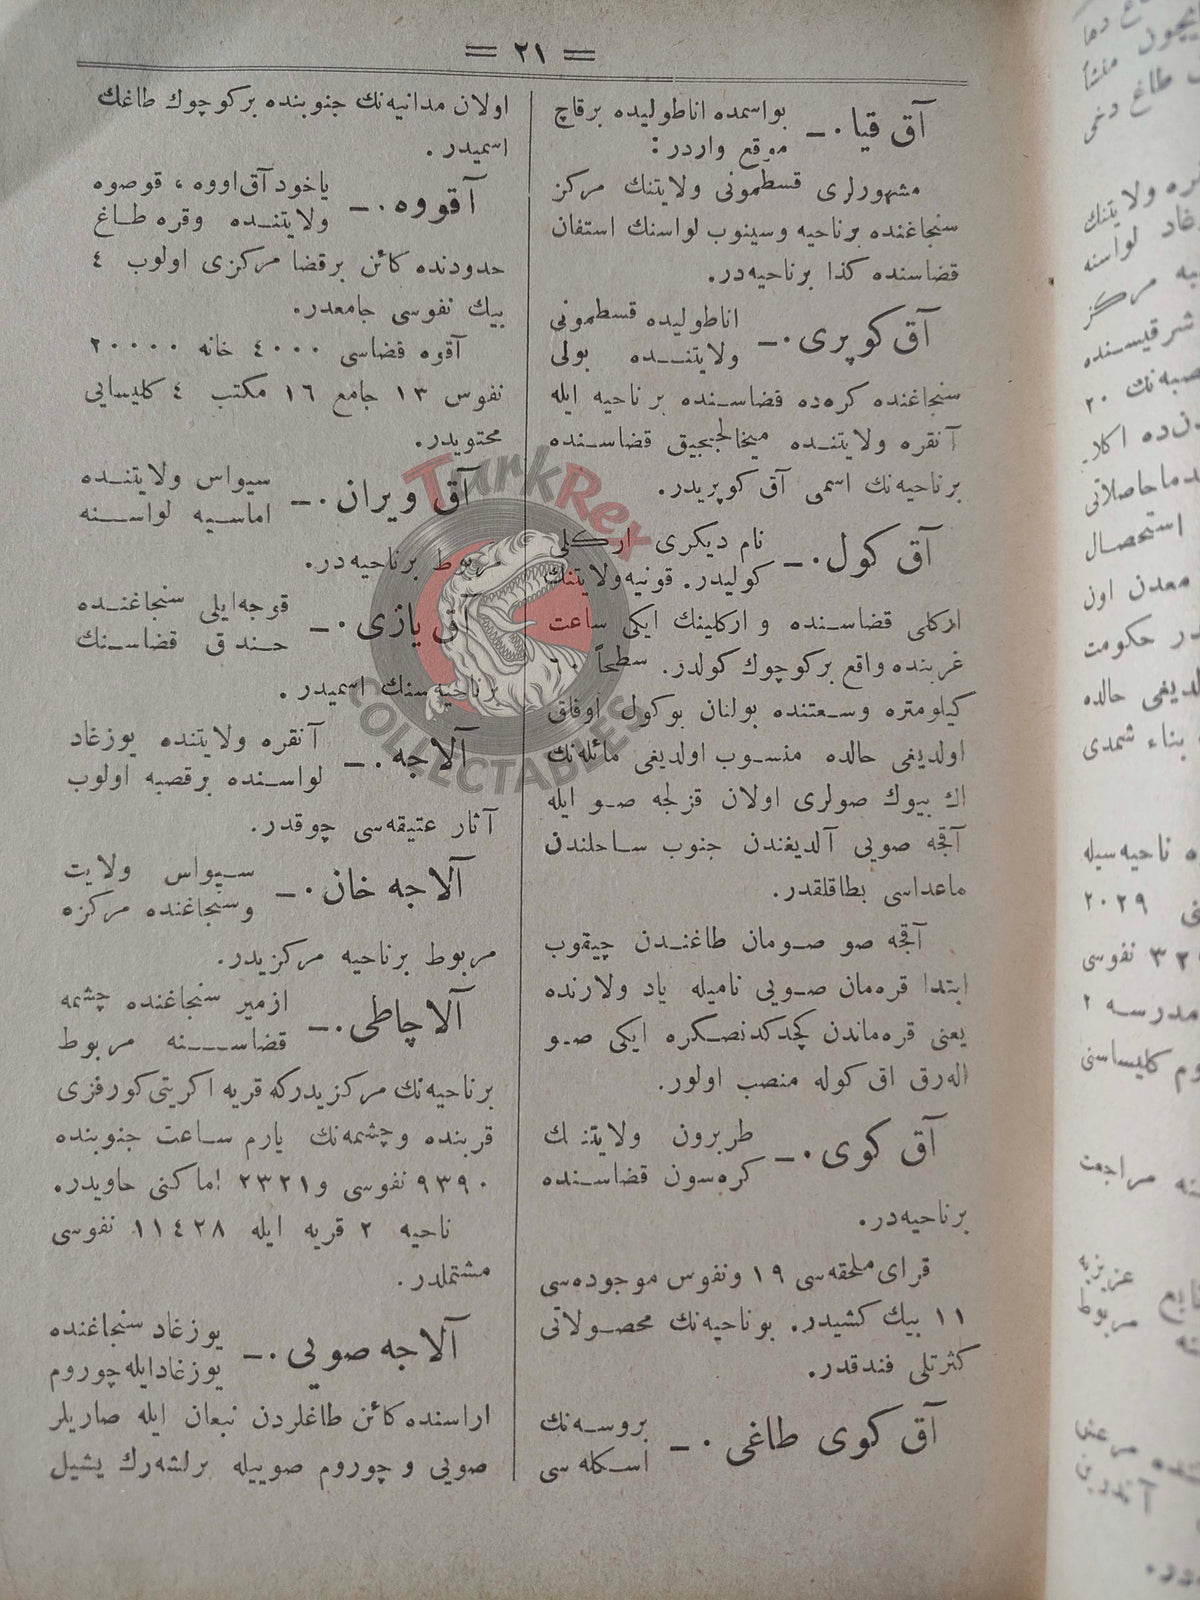 = ٢١ =
آق قیا ٠ــ بواسمده اناطولیده برقاچ
موقع واردر :
مشهورلری قسطمونی ولایتنك مركز
سنجاغنده برناحیه وسینوب لواسنك استفان
قضاسنده كذا برناحیه‌در.
آق كوپری ٠ــ اناطولیده قسطمونی
ولایتنـده بولی
سنجاغنده كره‌ده قضاسـنده بر ناحیه ایله
آنقره ولایتنـده میخالجیق قضاسـنده
برناحیه‌نك اسمی آق كوپریدر.
آق كول ٠ــ نام دیكری اركلی
كولیدر. قونیه ولایتنك
اركلی قضاسـنده و اركلینك ایكی ساعت
غربنده واقع بركوچوك كولدر. سطحاً
كیلومتره وسـعتنده بولنان بوكول اوفاق
اولدیغی حالده منسـوب اولدیغی مائله‌نك
اك بیوك صولری اولان قزلجه صـو ایله
آقجه صویی آلدیغندن جنوب سـاحلندن
ماعداسی بطاقلقدر.
آقجه صو صـومان طاغنـدن چیقوب
ابتدا قره‌مان صـویی نامیله یاد ولارنده
یعنی قره‌ماندن كچدكدنصـكره ایكی صـو
اله‌رق اق كوله منصب اولور.
آق كوی ٠ــ طربزون ولایتنـك
كره‌سون قضاسـنده
برناحیه‌در.
قرای ملحقه‌سی ١٩ ونفوس موجوده‌سی
١١ بیك كشیدر. بوناحیه‌نك محصـولاتی
كثرتلی فندقدر.
آق كوی طاغی ٠ــ بروسـه‌نك
اسـكله سی
اولان مدانیه‌نك جنوبنده بركوچوك طاغك
اسمیدر .
آقووه ٠ــ یاخود آق اووه ، قوصوه
ولایتنـده وقره طـاغ
حدودنده كائن برقضا مركزی اولوب ٤
بیك نفوسی جامعدر.
آقوه قضاسی ٤٠٠٠ خانه ٢٠٠٠٠
نفوس ١٣ جامع ١٦ مكتب ٤ كلیسایی
محتویدر.
آق ویران ٠ــ سیواس ولایتنـده
اماسـیه لواسـنه
مربوط برناحیه‌در.
آق یازی ٠ــ قوجه‌ایلی سنجاغنـده
خـندق قضاسـنك
برناحیه‌سنك اسمیدر .
آلاجه ٠ــ آنقره ولایتنده یوزغاد
لواسـنده برقصبه اولوب
آثار عتیقه‌سی چوقدر.
آلاجه خان ٠ــ سـیواس ولایت
وسنجاغنده مركزه
مربوط برناحیه مركزیدر.
آلاچاطی ٠ــ ازمیر سنجاغنده چشمه
قضاسـنه مربوط
برناحیه‌نك مركزیدركه قریه اكریتی كورفزی
قربنده وچشمه‌نك یارم سـاعت جنوبنده
٩٣٩٠ نفوسی و٢٣٢١ اماكنی حاویدر.
ناحیه ٢ قریه ایله ١١٤٢٨ نفوسی
مشتملدر.
آلاجه صویی ٠ــ یوزغاد سنجاغنده
یوزغادایله چوروم
اراسنده كائن طاغلردن نبعان ایله صاریلر
صویی و چوروم صوییله برلشه‌رك یشیل
TurkRex
COLLECTABLES